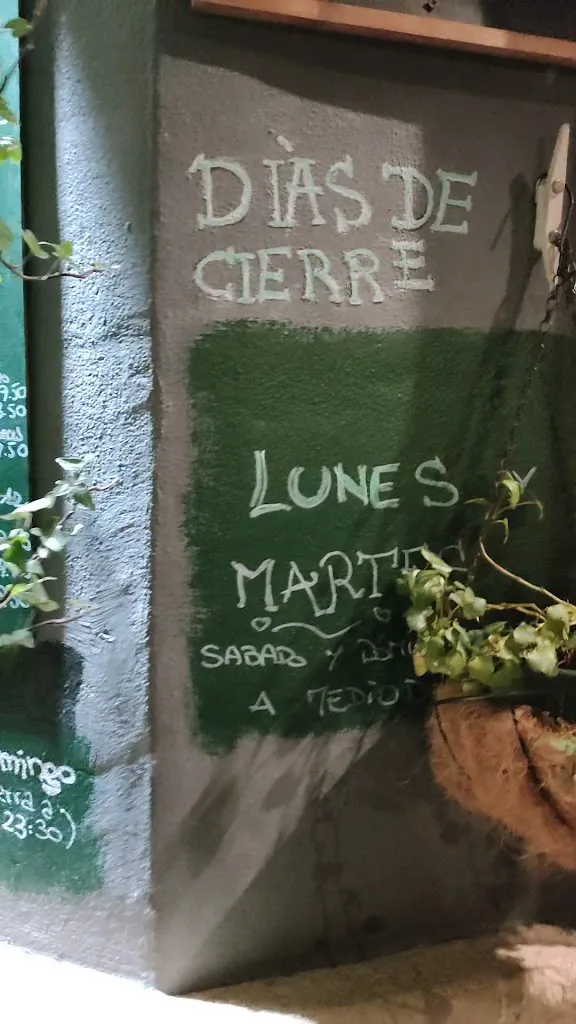 DÌAS DE
CIERRE
LUNES Y
MARTES
SABADO Y
A MEDIOD
9.50
8.50
9.50
mingo
erra a
23:30)